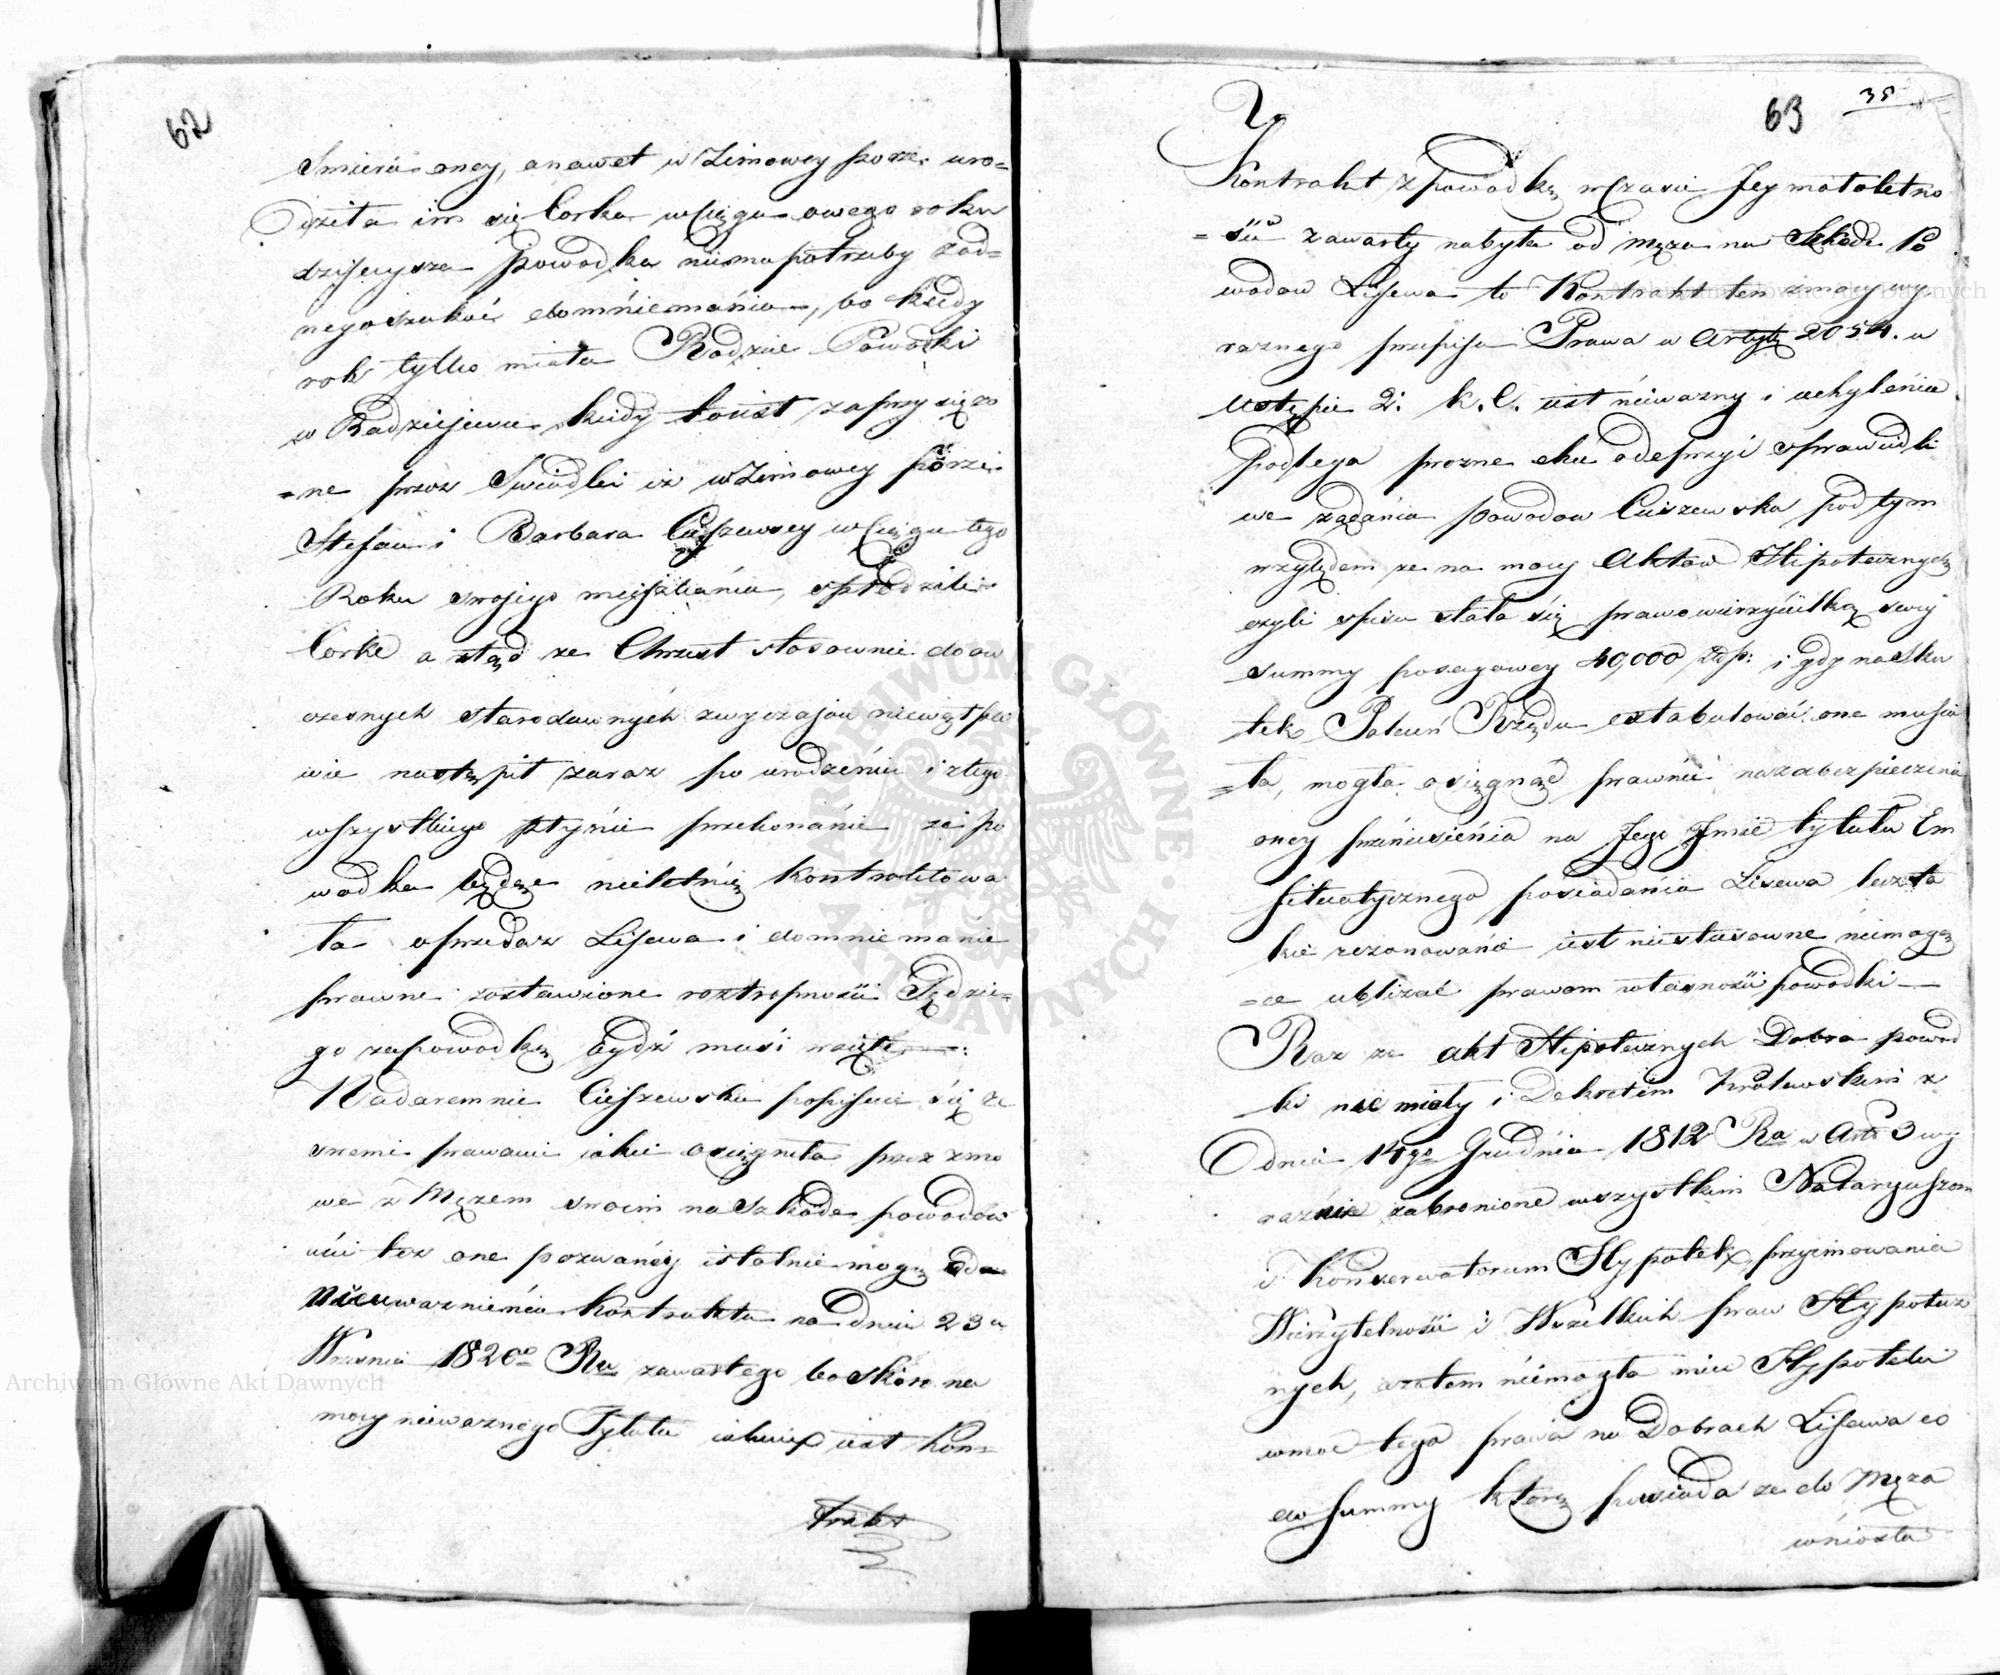 62
Smierci oney, a nawet w Zimowey porze uro=
dziła im się Corka w Ciągu owego roku
dzisieysza Powodka niema potrzeby żad=
nego szukać domniemania, bo kiedy
rok tylko miała Rodzice Powodki
w Radziejewie kiedy to iest zaprzysiężo
=ne przez Swiadki iż w Zimowey porze
Stefan i Barbara Cieszewscy w Ciągu tego
Roku swojego mieszkania, spłodzili
Corke a stąd że Chrzest stosownie do ow
czesnych starodawnych zwyczajów niewątpli
wie nastąpił zaraz po urodzeniu i z tego
wszystkiego płynie przekonanie że po
wodka będąc nieletnią kontraktowa
ła o sprzedaż Lisewa i domniemanie
prawne zostawione roztropności Sędzie=
go za powodką bydź musi wzięte
Nadaremnie Cieszewska popisuie się ze
swemi prawami iakie osiągneła przez zmo
we z Mężem swoim na szkodę powodów
nici też one pozwaney istotnie mogą od
Nieuważnienia Kontraktu na dniu 23
Wrzesnia 1820 Ru zawartego bo skoro na
mocy nieważnego Tytułu iakim iest Kon=
trakt
63
38
Kontrakt z powodką w Czasie Jey małoletno
=ści zawarty nabyła od męża na Szkode Po
wodow Lisewa to Kontrakt ten z mocy wy
raznego przepisu Prawa w Artyk 2054. w
Ustępie 2. K. C. iest nieważny i uchylenia
Podlega prozne chce odeprzyć sprawiedli
we żądania powodow Cieszewska pod tym
względem że na mocy Aktow Hipotecznych
czyli spisu stała się prawowierzycielką swey
summy posagowey 40,000 Złp: i gdy na sku
tek Poleceń Rządu extabulować one musia
=ła, mogła osięgnąć prawnie na zabezpieczenia
oney przeniesienia na Jego Imie tytułu Em
fiteutycznego posiadania Lisewa lecz ta
kie rezonowanie iest niestosowne niemogą
=ce ubliżać prawom własności powodki
Raz że akt Hipotecznych Dobra powod
ki nie miały i Dekretem Krolewskim z
dnia 14go Grudnia 1812 Ra w Art 3 wy
raźnie zabronione wszystkim Notaryuszom
i Konserwatorom Hypotek przyimowania
Wierzytelności i Wszelkich praw Hypotecz
nych, a zatem niemogła mieć Hypoteki
w moc tego prawa na Dobrach Lisewa co
do summy którą powiada że do Męża
wniosła
ARCHIWUM GŁÓWNE AKT DAWNYCH
Archiwum Główne Akt Dawnych
Archiwum Główne Akt Dawnych